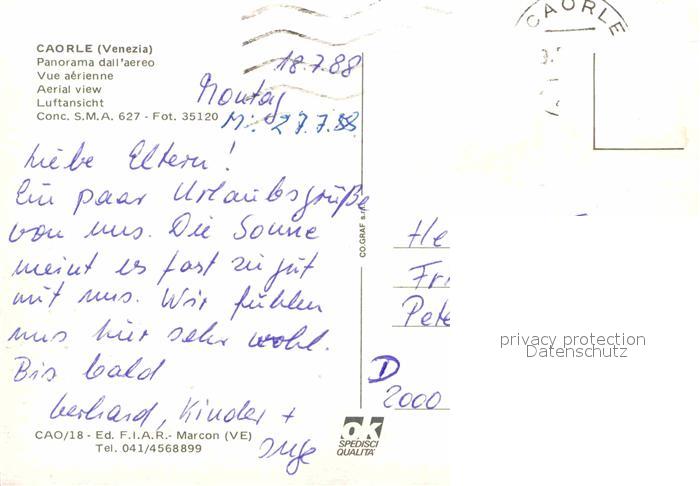 CAORLE
CAORLE (Venezia)
Panorama dall'aereo
Vue aérienne
Aerial view
Luftansicht
Conc. S.M.A. 627 - Fot. 35120
18.7.88
Montag
27.7.88
Liebe Eltern!
Ein paar Urlaubsgrüße
von uns. Die Sonne
meint es fast zu gut
mit uns. Wir fühlen
uns hier sehr wohl.
Bis bald
Gerhard, Kinder +
Inge
CO.GRAF s.r.l.
He
Fri
Pete
D
2000
privacy protection
Datenschutz
CAO/18 - Ed. F.I.A.R.- Marcon (VE)
Tel. 041/4568899
ok
SPEDISCI
QUALITA'